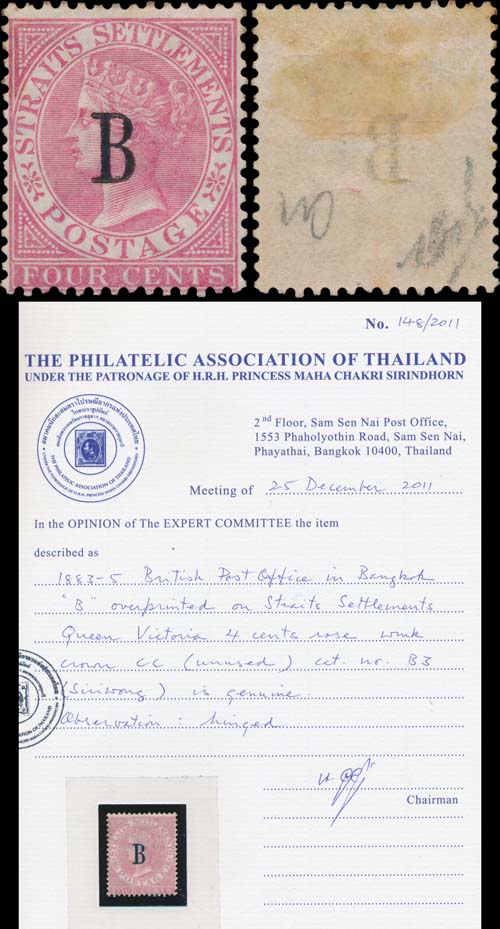 STRAITS SETTLEMENTS
B
POSTAGE
FOUR CENTS
B
No. 148/2011
THE PHILATELIC ASSOCIATION OF THAILAND
UNDER THE PATRONAGE OF H.R.H. PRINCESS MAHA CHAKRI SIRINDHORN
2nd Floor, Sam Sen Nai Post Office,
1553 Phaholyothin Road, Sam Sen Nai,
Phayathai, Bangkok 10400, Thailand
Meeting of 25 December 2011
In the OPINION of The EXPERT COMMITTEE the item
described as
1883-5 British Post Office in Bangkok
"B" overprinted on Straits Settlements
Queen Victoria 4 cents rose wmk
crown CC (unused) cat. no. B3
(Siriwong) is genuine.
Observation : hinged
Chairman
STRAITS SETTLEMENTS
B
POSTAGE